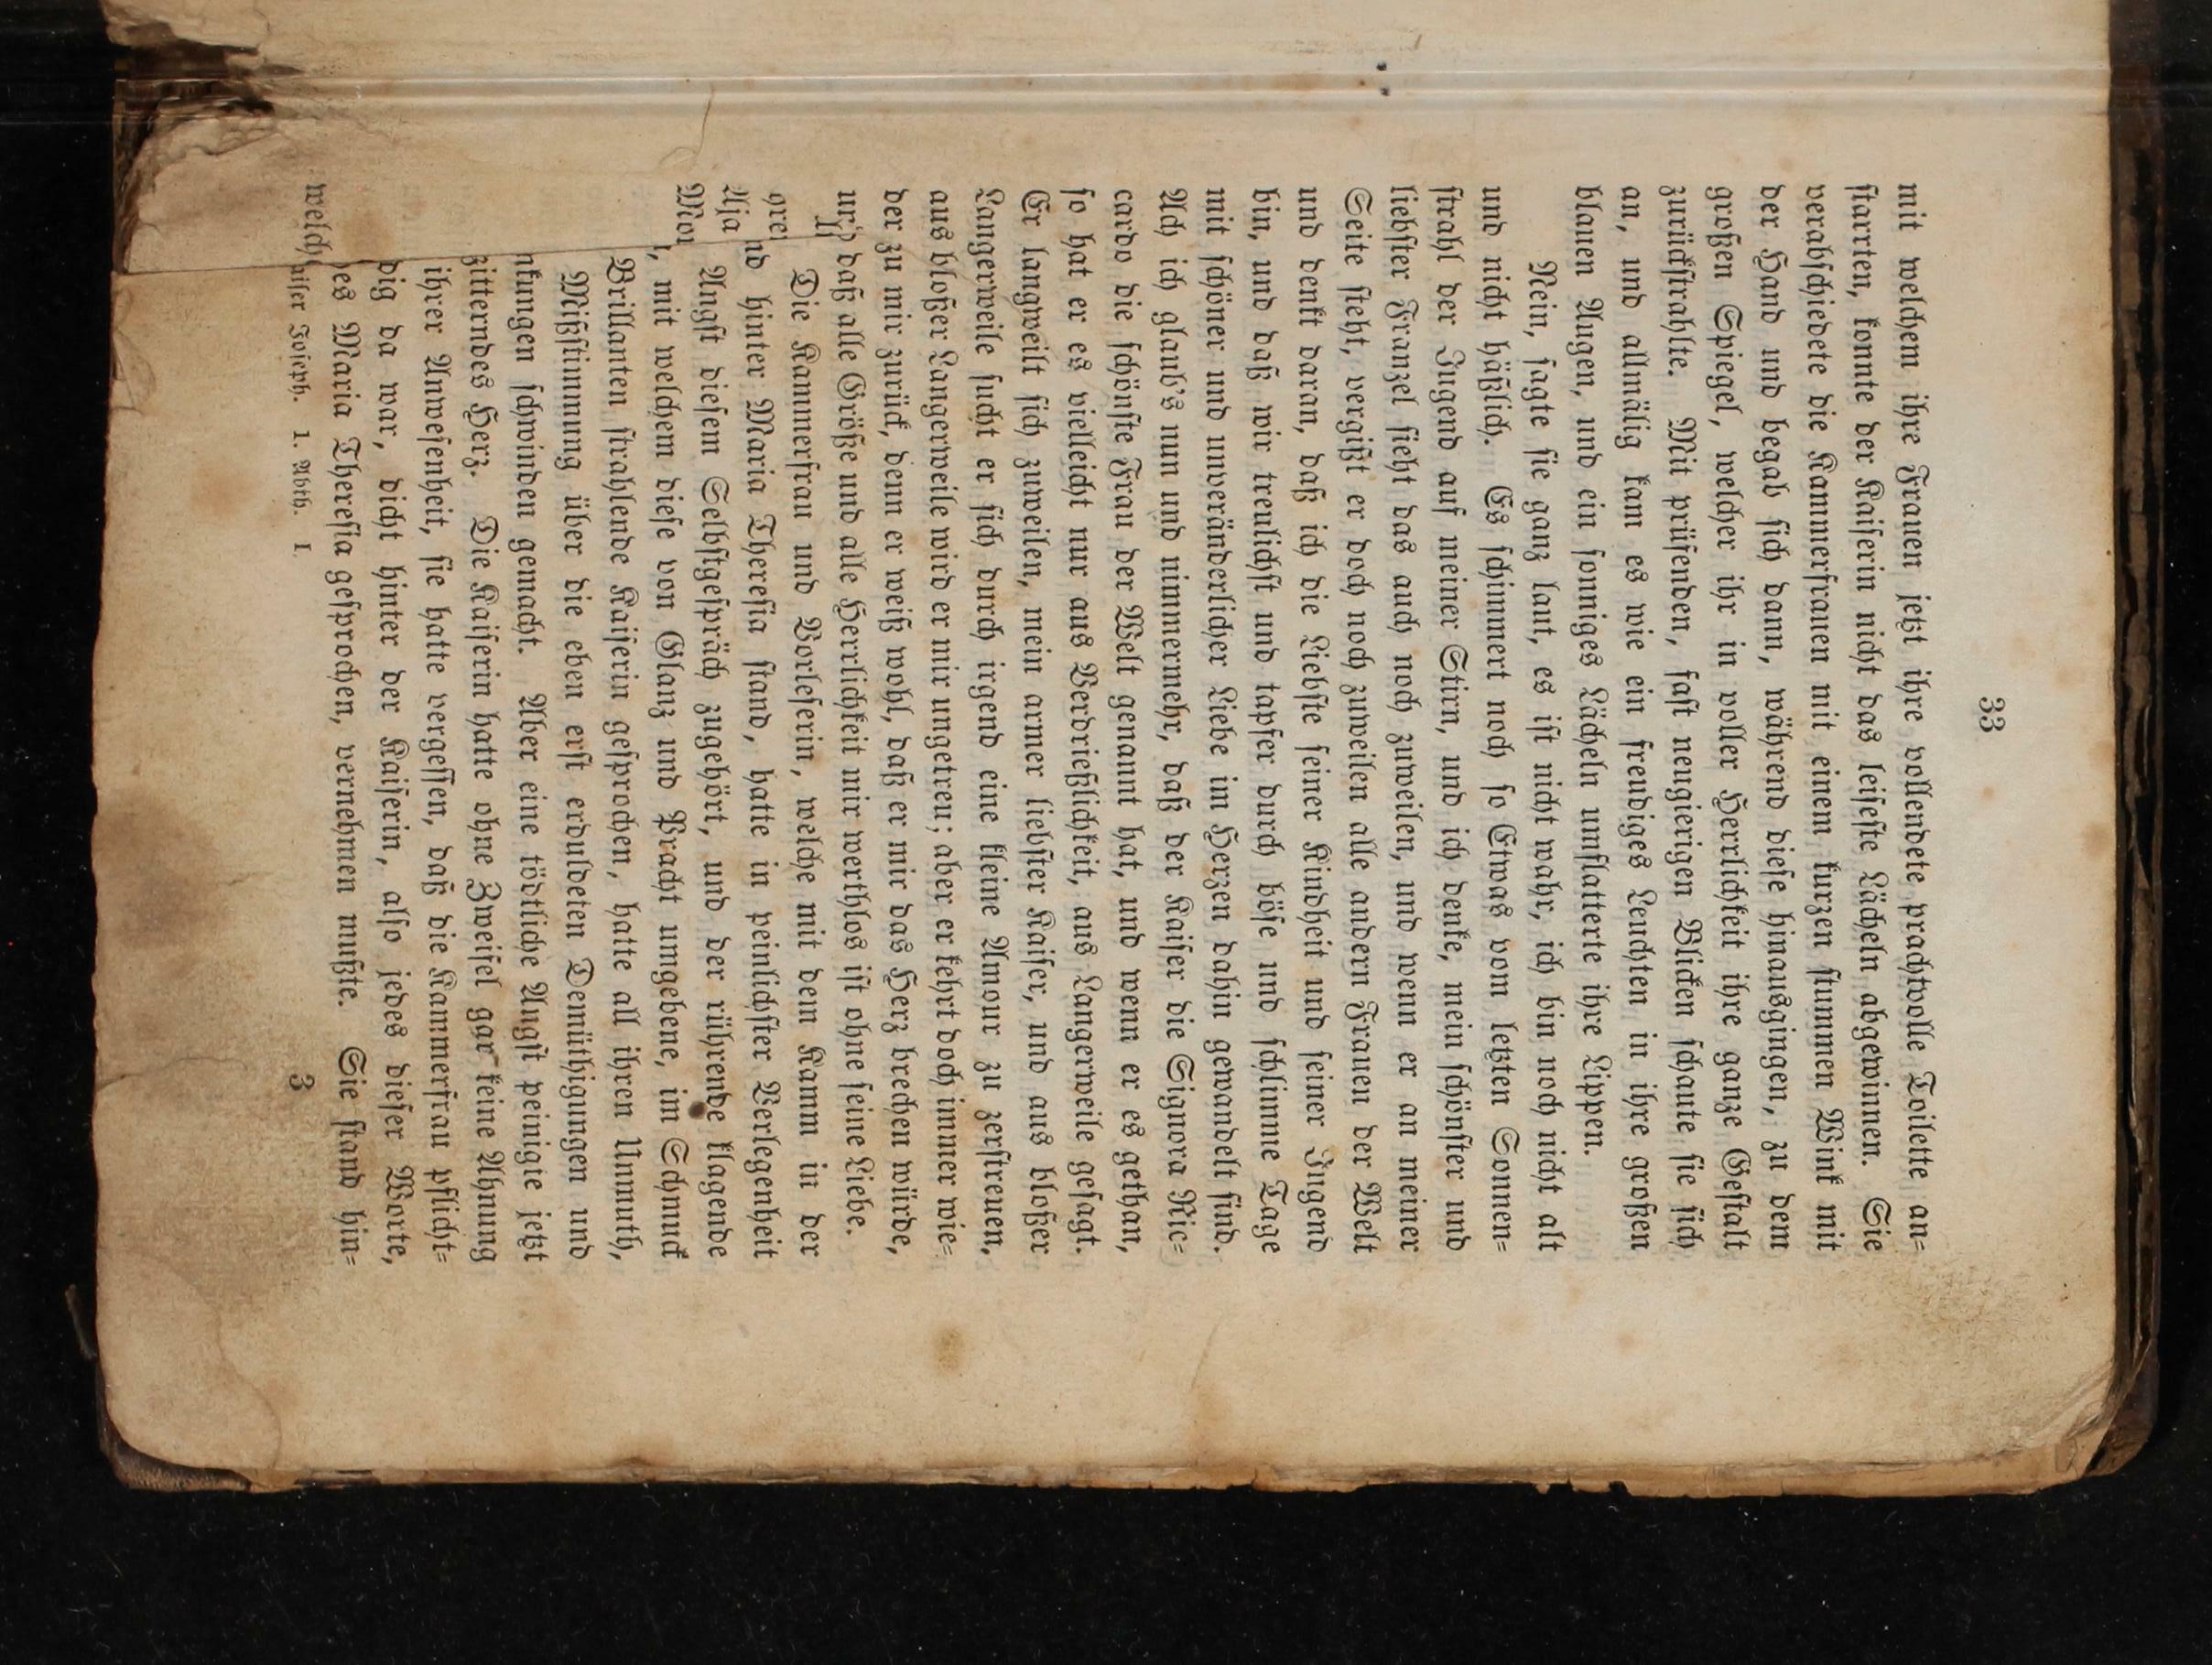 33
mit welchem ihre Frauen jetzt ihre vollendete prachtvolle Toilette an=
starrten, konnte der Kaiserin nicht das leiseste Lächeln abgewinnen. Sie
verabschiedete die Kammerfrauen mit einem kurzen stummen Wink mit
der Hand und begab sich dann, während diese hinausgingen, zu dem
großen Spiegel, welcher ihr in voller Herrlichkeit ihre ganze Gestalt
zurückstrahlte. Mit prüfenden, fast neugierigen Blicken schaute sie sich
an, und allmälig kam es wie ein freudiges Leuchten in ihre großen
blauen Augen, und ein sonniges Lächeln umflatterte ihre Lippen.
Nein, sagte sie ganz laut, es ist nicht wahr, ich bin noch nicht alt
und nicht häßlich. Es schimmert noch so Etwas vom letzten Sonnen=
strahl der Jugend auf meiner Stirn, und ich denke, mein schönster und
liebster Franzel sieht das auch noch zuweilen, und wenn er an meiner
Seite steht, vergißt er doch noch zuweilen alle andern Frauen der Welt
und denkt daran, daß ich die Liebste seiner Kindheit und seiner Jugend
bin, und daß wir treulichst und tapfer durch böse und schlimme Tage
mit schöner und unveränderlicher Liebe im Herzen dahin gewandelt sind.
Ach ich glaub's nun und nimmermehr, daß der Kaiser die Signora Ric=
cardo die schönste Frau der Welt genannt hat, und wenn er es gethan,
so hat er es vielleicht nur aus Verdrießlichkeit, aus Langerweile gesagt.
Er langweilt sich zuweilen, mein armer liebster Kaiser, und aus bloßer
Langerweile sucht er sich durch irgend eine kleine Amour zu zerstreuen,
aus bloßer Langerweile wird er mir ungetreu; aber er kehrt doch immer wie=
der zu mir zurück, denn er weiß wohl, daß er mir das Herz brechen würde,
daß alle Größe und alle Herrlichkeit mir werthlos ist ohne seine Liebe.
Die Kammerfrau und Vorleserin, welche mit dem Kamm in der
nd hinter Maria Theresia stand, hatte in peinlichster Verlegenheit
Angst diesem Selbstgespräch zugehört, und der rührende klagende
, mit welchem diese von Glanz und Pracht umgebene, im Schmuck
Brillanten strahlende Kaiserin gesprochen, hatte all ihren Unmuth,
Mißstimmung über die eben erst erduldeten Demüthigungen und
nkungen schwinden gemacht. Aber eine tödtliche Angst peinigte jetzt
zitterndes Herz. Die Kaiserin hatte ohne Zweifel gar keine Ahnung
ihrer Anwesenheit, sie hatte vergessen, daß die Kammerfrau pflicht=
dig da war, dicht hinter der Kaiserin, also jedes dieser Worte,
es Maria Theresia gesprochen, vernehmen mußte. Sie stand hin=
welch
iser Joseph. 1. Abth. I 3